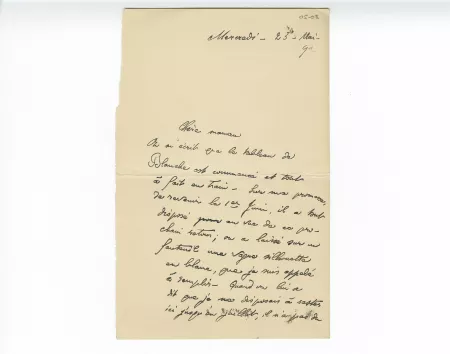 15-02
Mercredi - 23 - Mai -
Chère maman
On m'écrit que le tableau de
Blanche est commencé et tout
à fait en train - Sur ma promesse
de revenir le 1er Juin, il a tout
disposé pour en vue de ce pro-
chain retour; on a laissé sur un
fauteuil une vague silhouette
en blanc, que je suis appelé
à remplir - Quand on lui a
dit que je me disposais à rester
ici jusqu'en Juillet, il